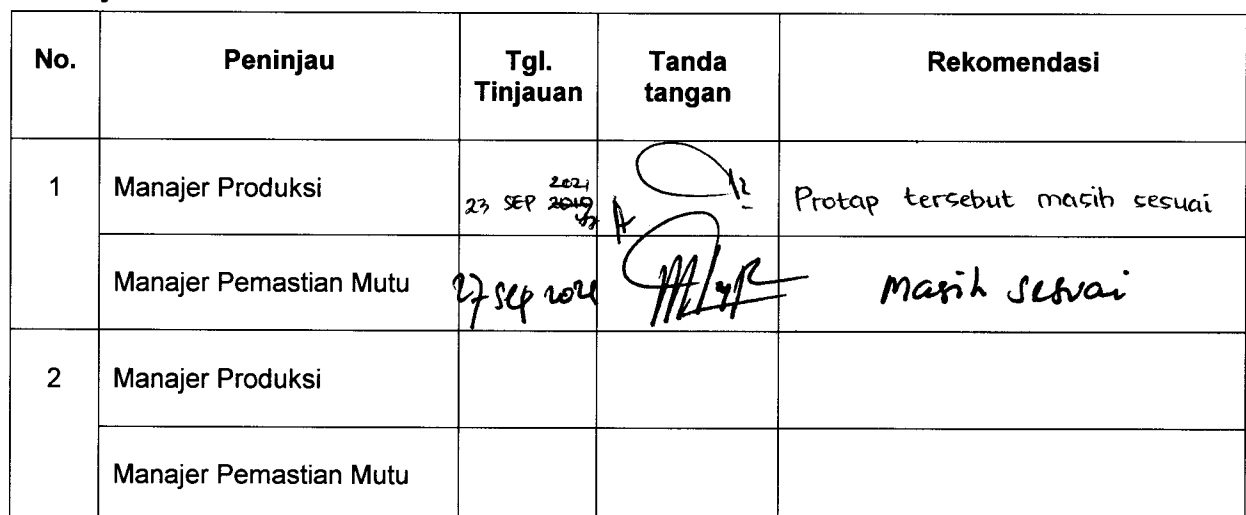 No. Peninjau Tgl. Tinjauan Tanda tangan Rekomendasi
1 Manajer Produksi 23 SEP 2019 2021 Protap tersebut masih sesuai
Manajer Pemastian Mutu 27 Sep 2021 Masih sesuai
2 Manajer Produksi
Manajer Pemastian Mutu